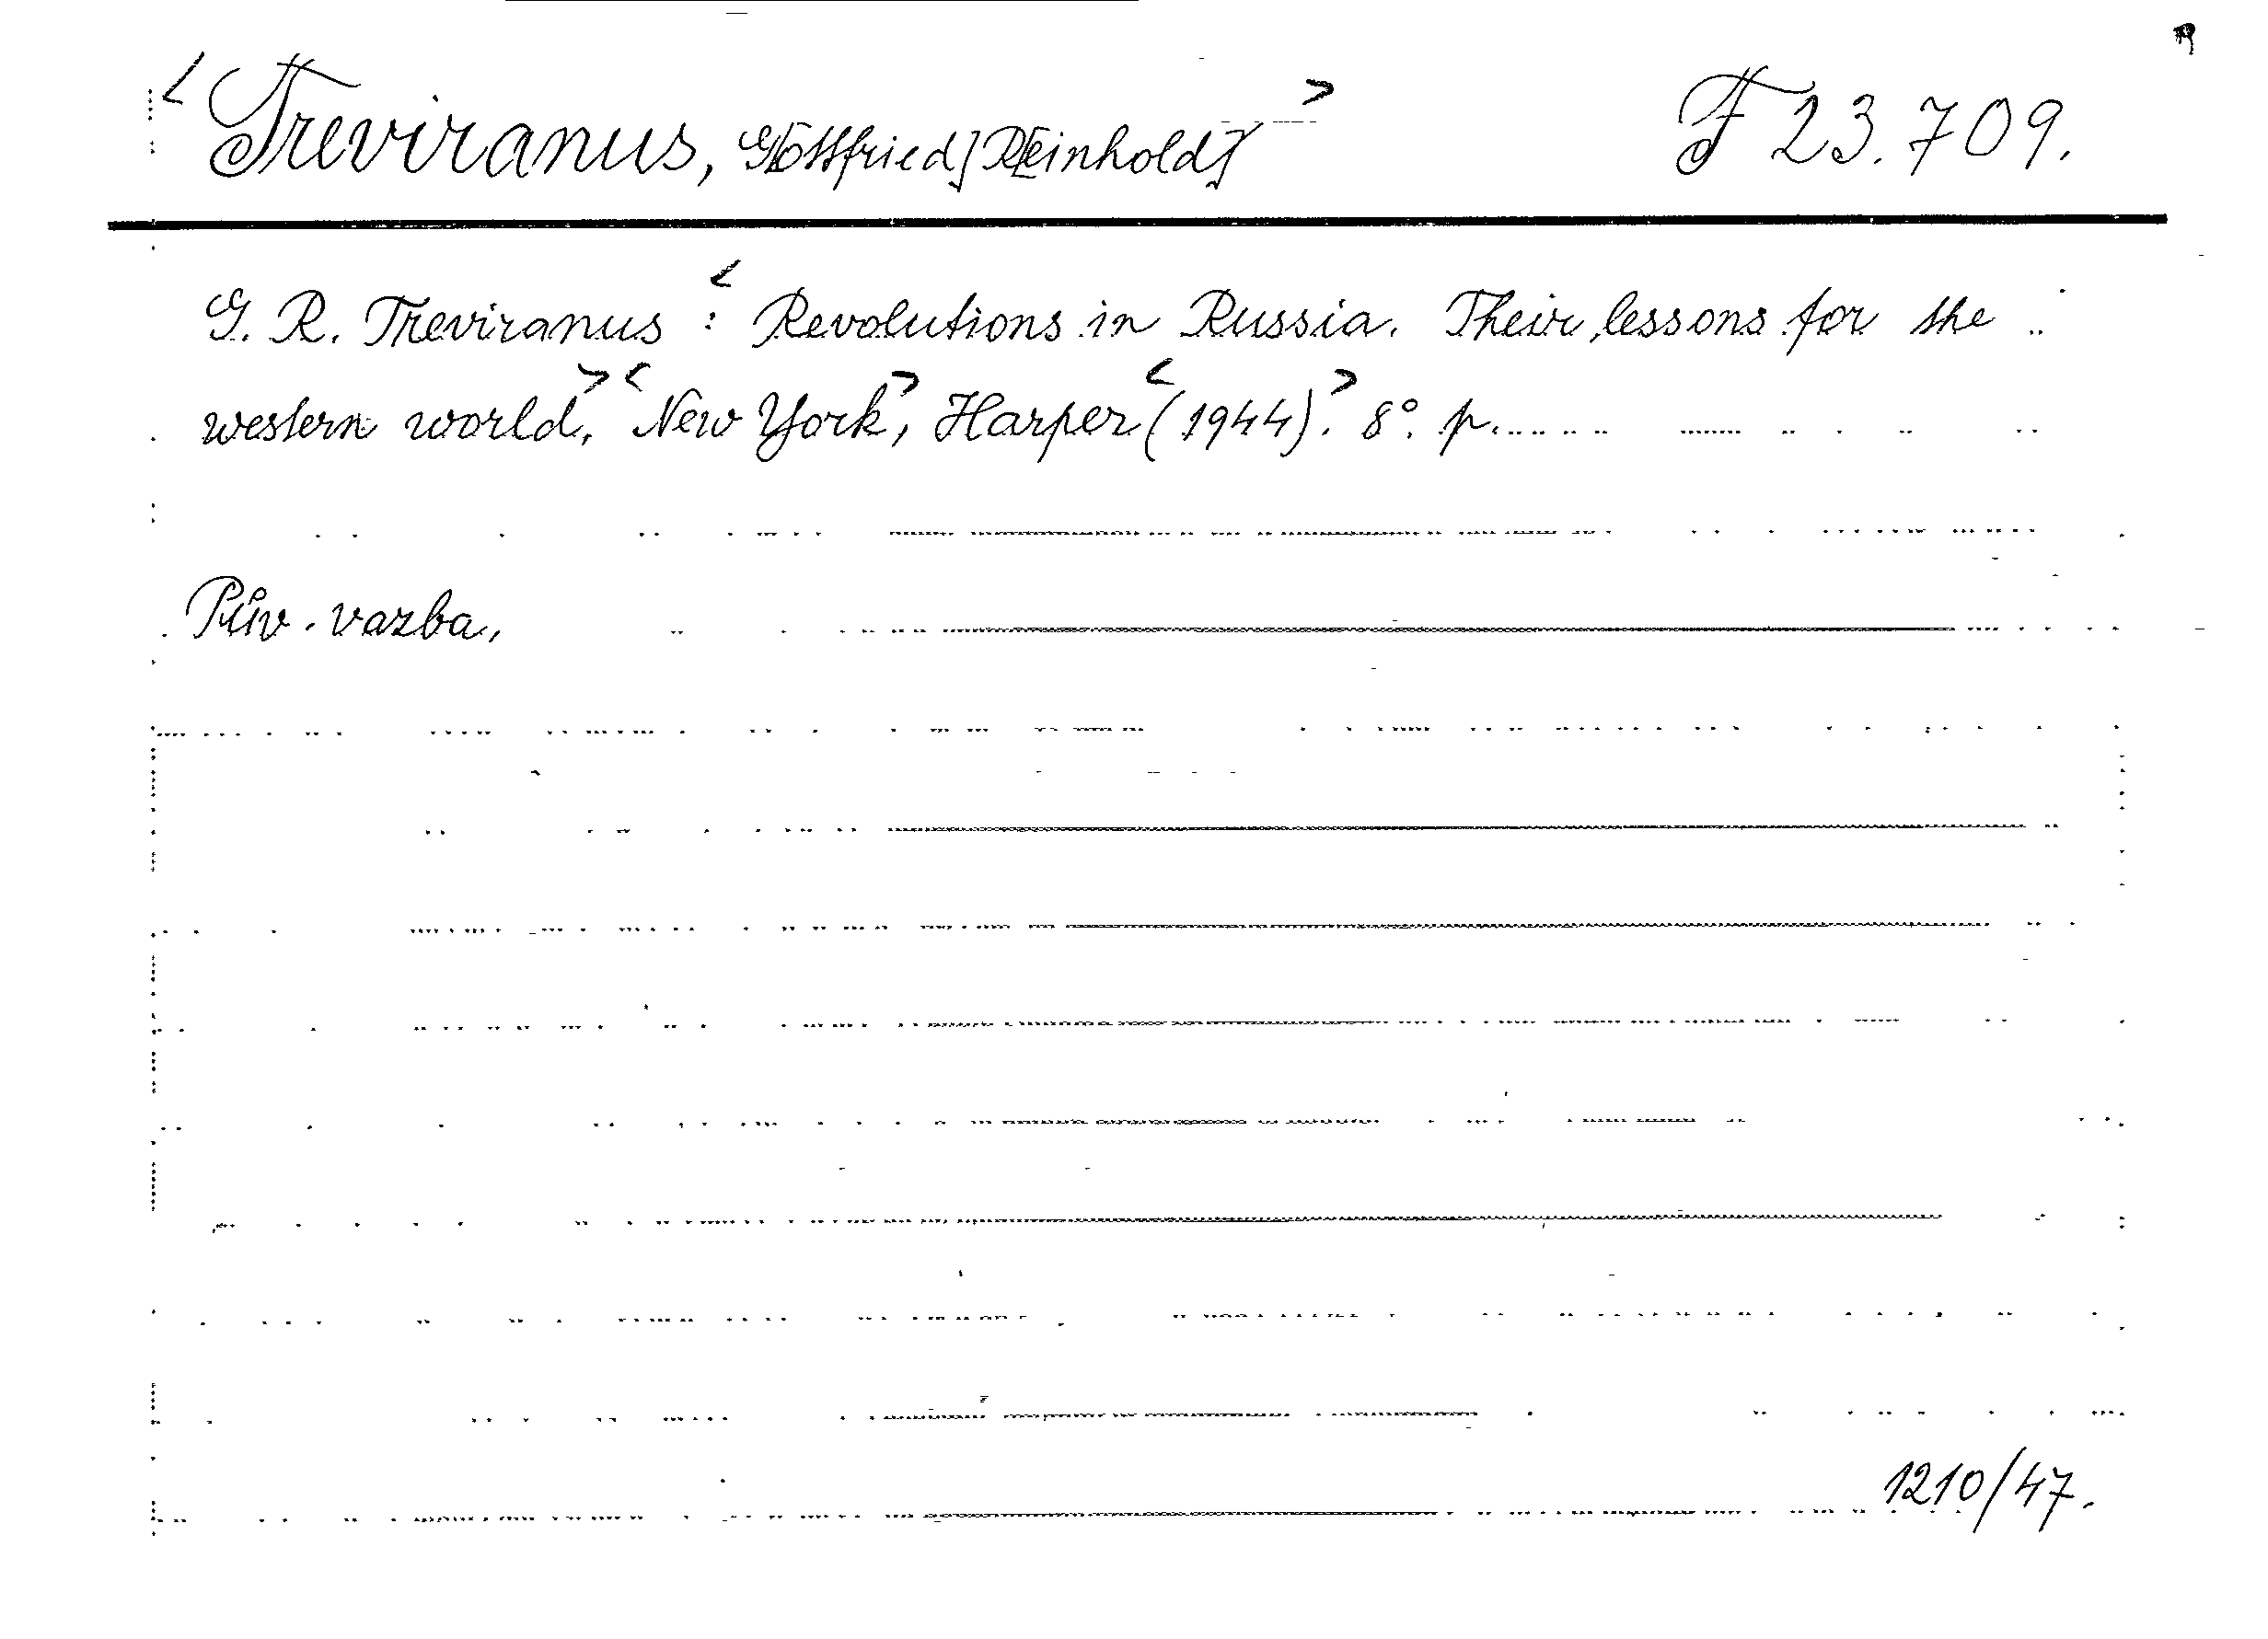 < Treviranus, G[ottfried] R[einhold] > F 23.709.
G. R. Treviranus : < Revolutions in Russia. Their lessons for the
western world. > < New York >, Harper < (1944). > 8°. p.
Pův. vazba.
1210/47.